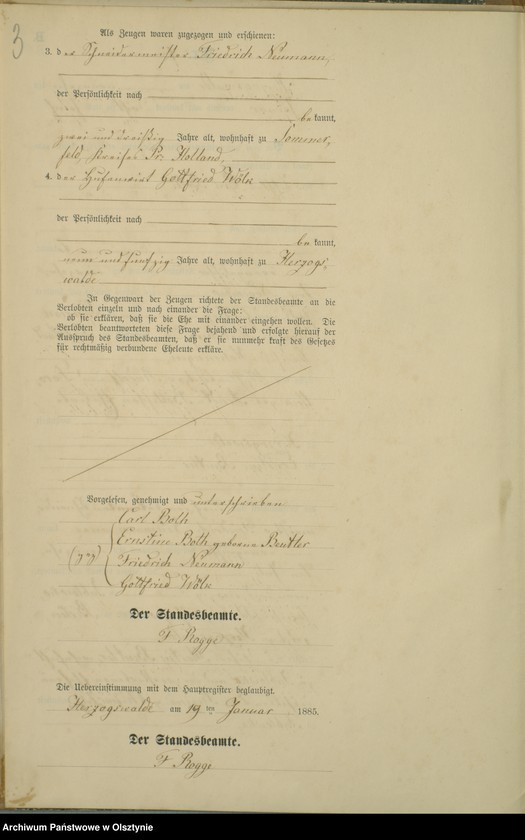 3
Als Zeugen waren zugezogen und erschienen:
3. der Schneidermeister Friedrich Neumann,
der Persönlichkeit nach
be kannt,
zwei und dreißig Jahre alt, wohnhaft zu Sommer,
feld, Kreises Pr. Holland,
4. der Hufenwirt Gottfried Wölk
der Persönlichkeit nach
be kannt,
neun und funfzig Jahre alt, wohnhaft zu Herzogs,
walde
In Gegenwart der Zeugen richtete der Standesbeamte an die
Verlobten einzeln und nach einander die Frage:
ob sie erklären, daß sie die Ehe mit einander eingehen wollen. Die
Verlobten beantworteten diese Frage bejahend und erfolgte hierauf der
Ausspruch des Standesbeamten, daß er sie nunmehr kraft des Gesetzes
für rechtmäßig verbundene Eheleute erkläre.
Vorgelesen, genehmigt und unterschrieben
Carl Both
Ernstine Both geborne Beutler
(gez) Friedrich Neumann
Gottfried Wölk
Der Standesbeamte.
F Rogge
Die Uebereinstimmung mit dem Hauptregister beglaubigt.
Herzogswalde am 19 ten Januar 1885.
Der Standesbeamte.
F Rogge
Archiwum Państwowe w Olsztynie